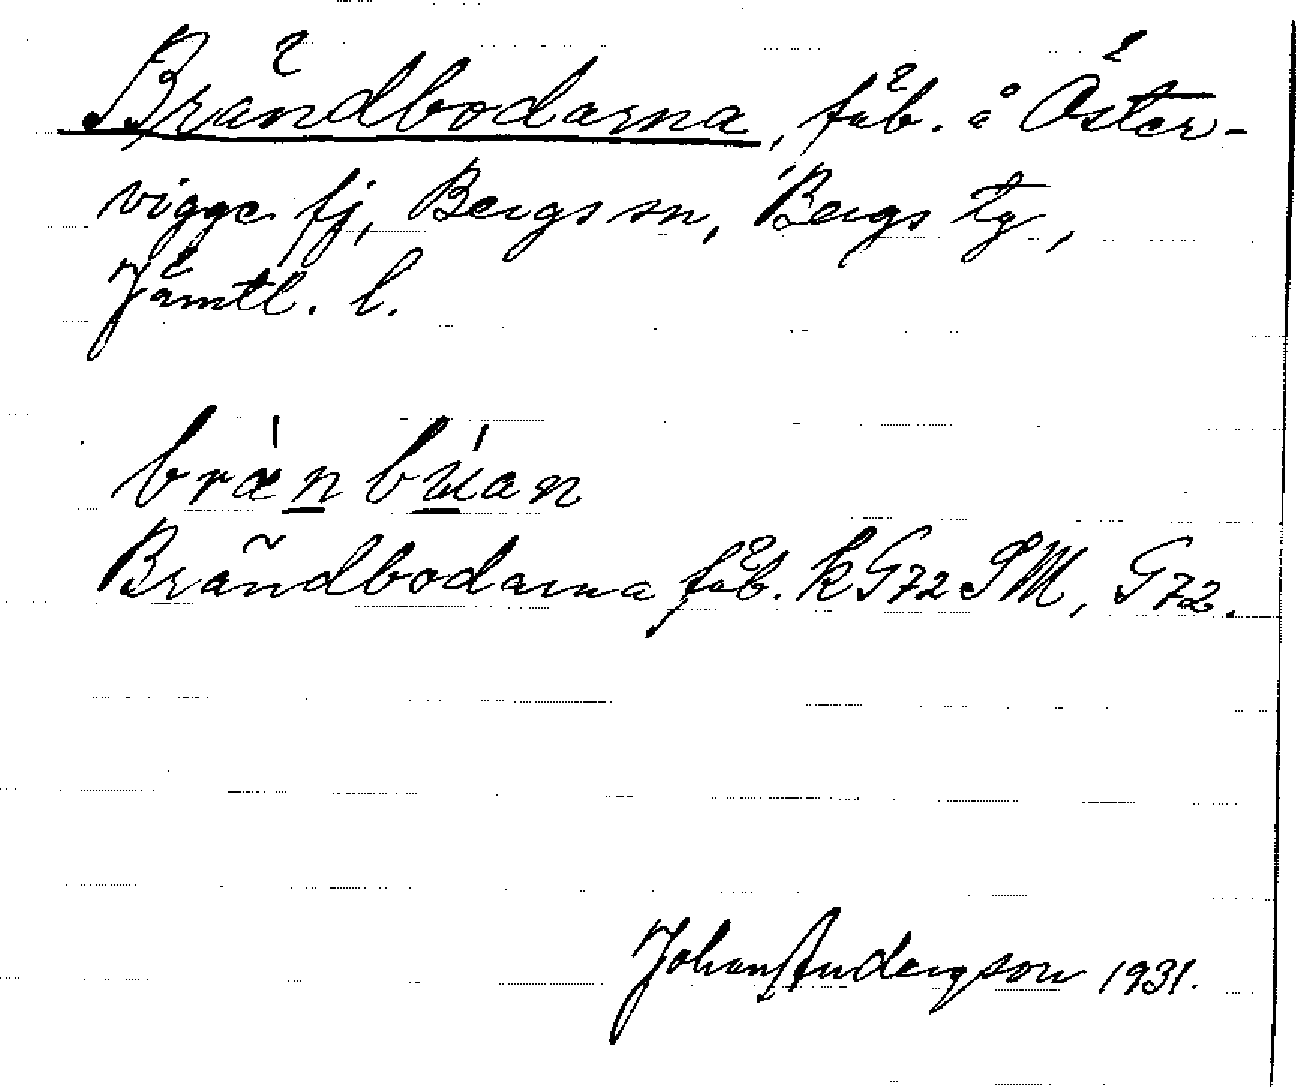 Brändbodarna, fäb. å Öster-
vigge fj, Bergs sn, Bergs tg,
Jämtl. l.
bræ̀n bùan
Brändbodarna fäb. k G72 SM, G72.
Johan Anderson 1931.